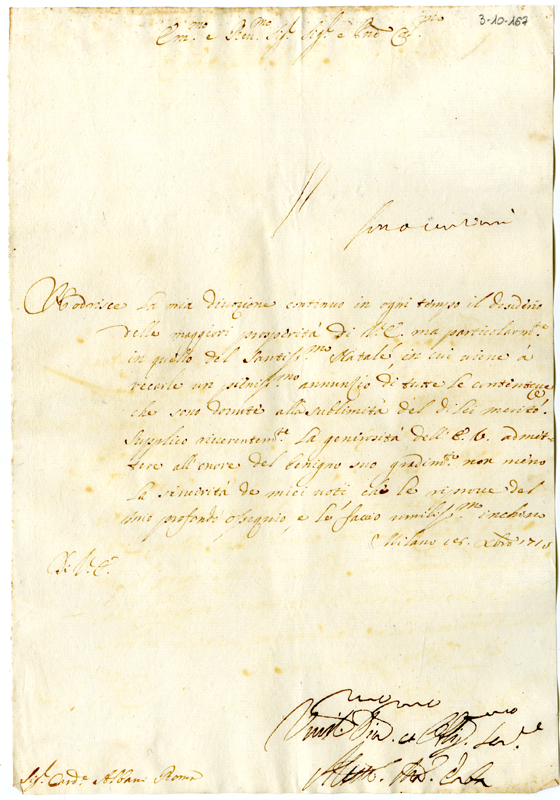 3-10-167
Em.mo e Rev.mo Sig.r Sig.r e Pne Col.mo
Nodrisce la mia divozione continuo in ogni tempo il desiderio
delle maggiori prosperità di V.E. ma particolarm.te
in quello del Santiss.mo Natale in cui viene à
recarle un pieniss.mo annunzio di tutte le contentezze
che sono dovute alla sublimità del di lei merito.
Supplico riverentem.te la generosità dell'E.V. admet-
tere all'onore del benigno suo gradim.to non meno
la sincerità de miei voti che le riprove del
mio profondo ossequio, e le faccio umiliss.mo inchino
Milano Xbre
Di V.E.
Sig.r Card.e Albani Roma
Umil.mo Div. et Obblig. Ser.re
Erba